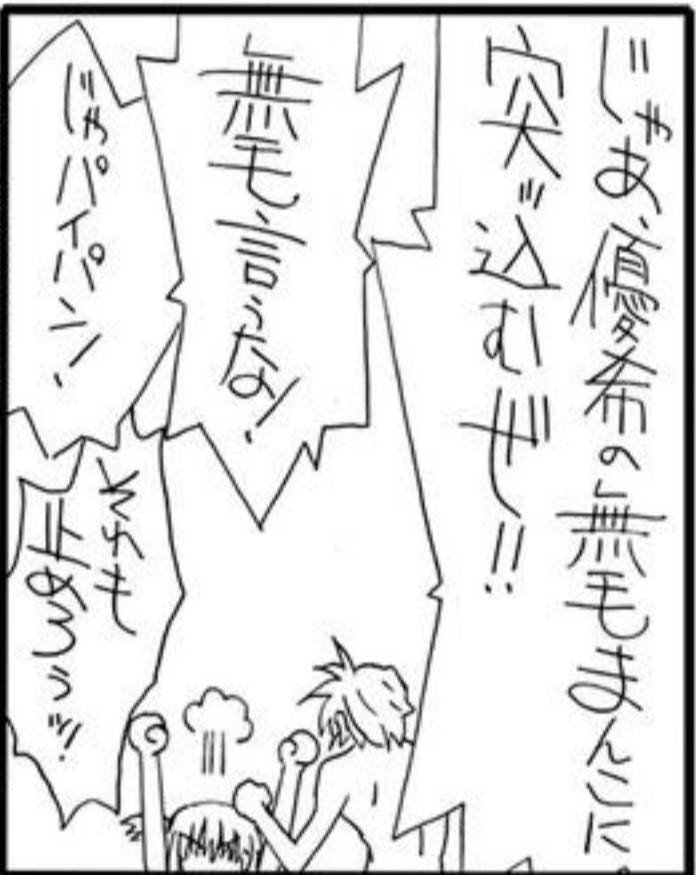 じゃあ、優希の無毛まんこに
突ッ込むぞ!!
無毛言うな!
じゃパイパン!
それも
止めろぅッ!